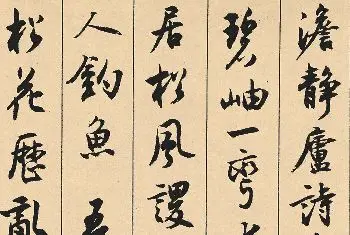 澹静廬詩
碧岫一
居松風謖
人釣魚
松花歷亂